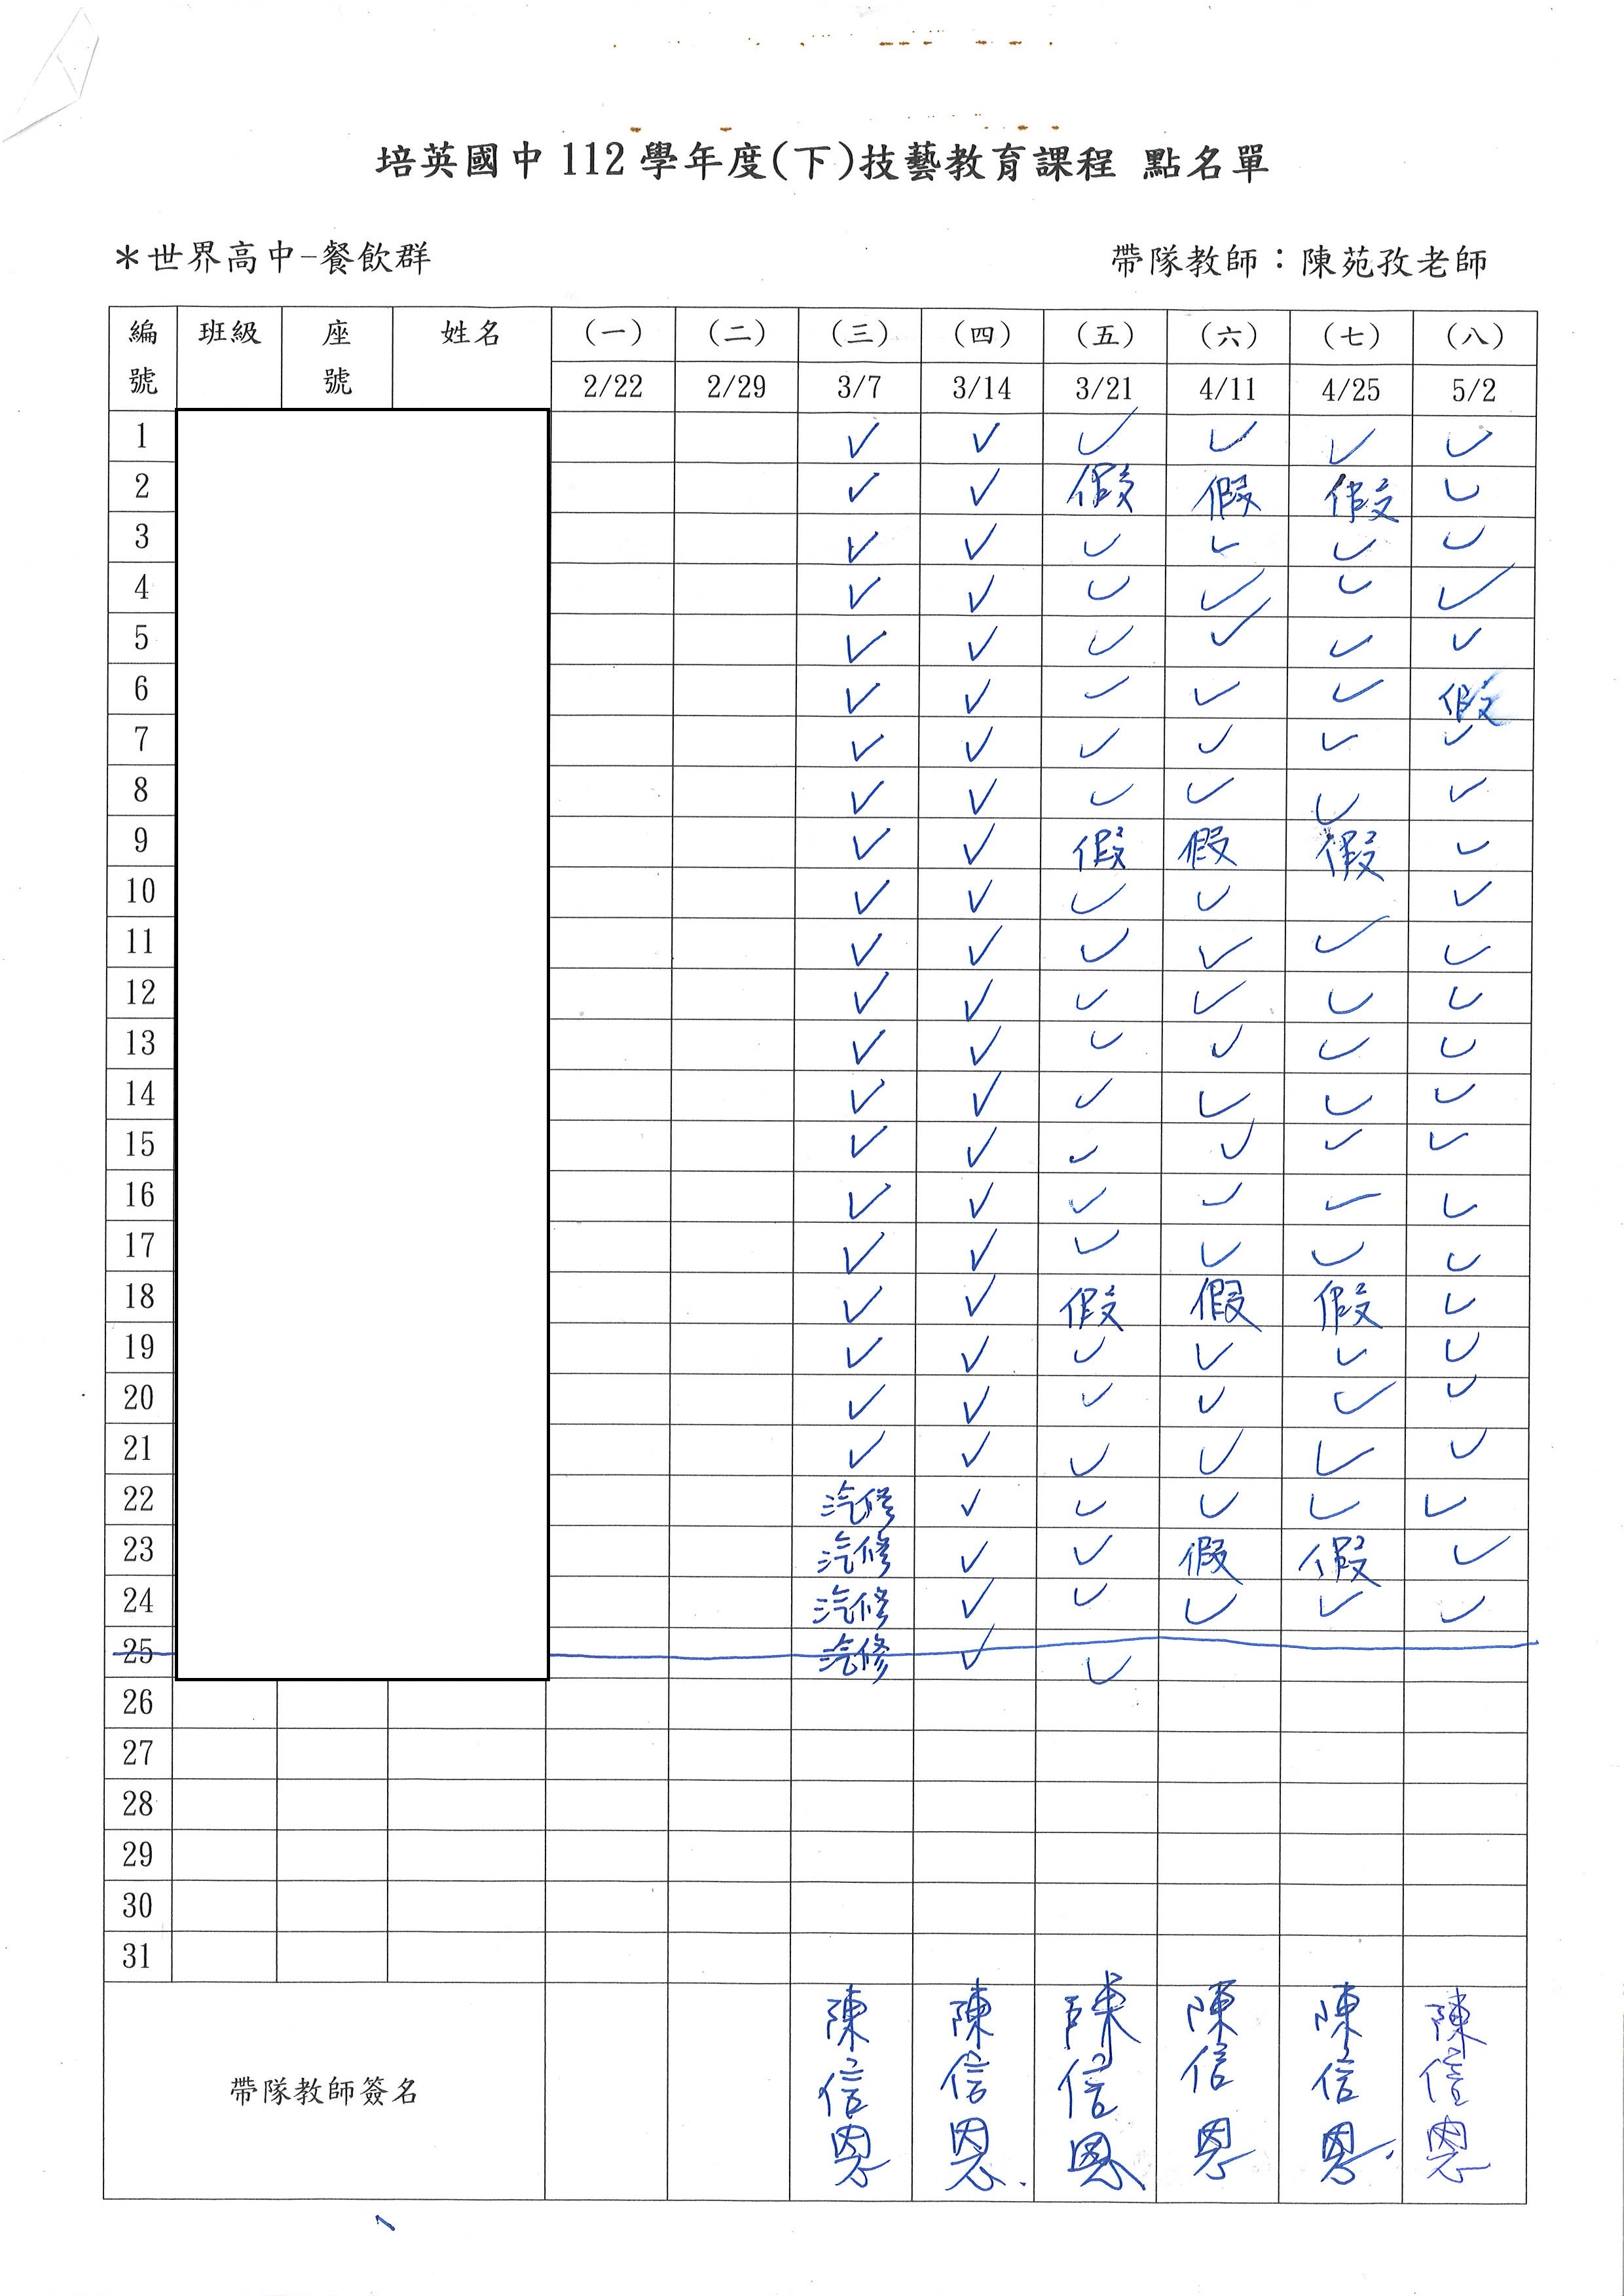 培英國中 112 學年度(下)技藝教育課程 點名單
＊世界高中-餐飲群 帶隊教師：陳苑孜老師
編號 班級 座號 姓名 (一) (二) (三) (四) (五) (六) (七) (八)
2/22 2/29 3/7 3/14 3/21 4/11 4/25 5/2
1 ✓ ✓ ✓ ✓ ✓ ✓
2 ✓ ✓ 假 假 假 ✓
3 ✓ ✓ ✓ ✓ ✓ ✓
4 ✓ ✓ ✓ ✓ ✓ ✓
5 ✓ ✓ ✓ ✓ ✓ ✓
6 ✓ ✓ ✓ ✓ ✓ 假
7 ✓ ✓ ✓ ✓ ✓ ✓
8 ✓ ✓ ✓ ✓ ✓ ✓
9 ✓ ✓ 假 假 假 ✓
10 ✓ ✓ ✓ ✓ ✓
11 ✓ ✓ ✓ ✓ ✓ ✓
12 ✓ ✓ ✓ ✓ ✓ ✓
13 ✓ ✓ ✓ ✓ ✓ ✓
14 ✓ ✓ ✓ ✓ ✓ ✓
15 ✓ ✓ ✓ ✓ ✓ ✓
16 ✓ ✓ ✓ ✓ ✓ ✓
17 ✓ ✓ ✓ ✓ ✓ ✓
18 ✓ ✓ 假 假 假 ✓
19 ✓ ✓ ✓ ✓ ✓ ✓
20 ✓ ✓ ✓ ✓ ✓ ✓
21 ✓ ✓ ✓ ✓ ✓ ✓
22 汽修 ✓ ✓ ✓ ✓ ✓
23 汽修 ✓ ✓ 假 假 ✓
24 汽修 ✓ ✓ ✓ ✓ ✓
25 汽修 ✓ ✓
26
27
28
29
30
31
帶隊教師簽名 陳信恩 陳信恩 陳信恩 陳信恩 陳信恩 陳信恩